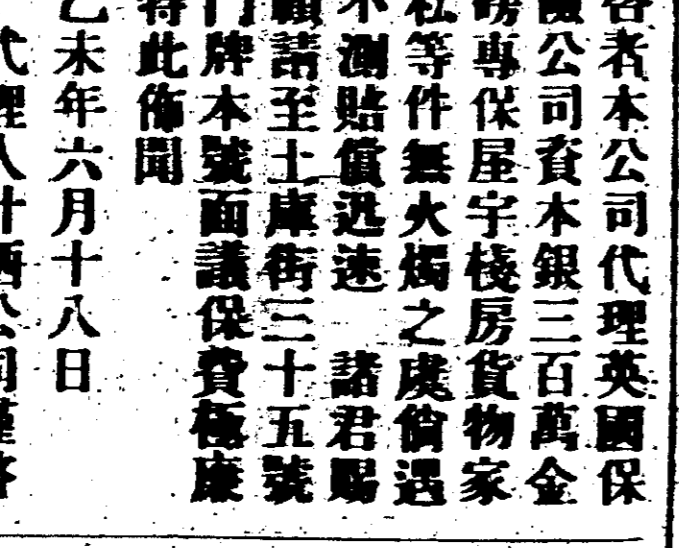 啓者本公司代理英國保
險公司資本銀三百萬金
磅專保屋宇棧房貨物家
私等件無火燭之虞倘遇
不測賠償迅速 諸君賜
顧請至土庫街三十五號
門牌本號面議保費極廉
特此佈聞
乙未年六月十八日
代理人
公司謹啓